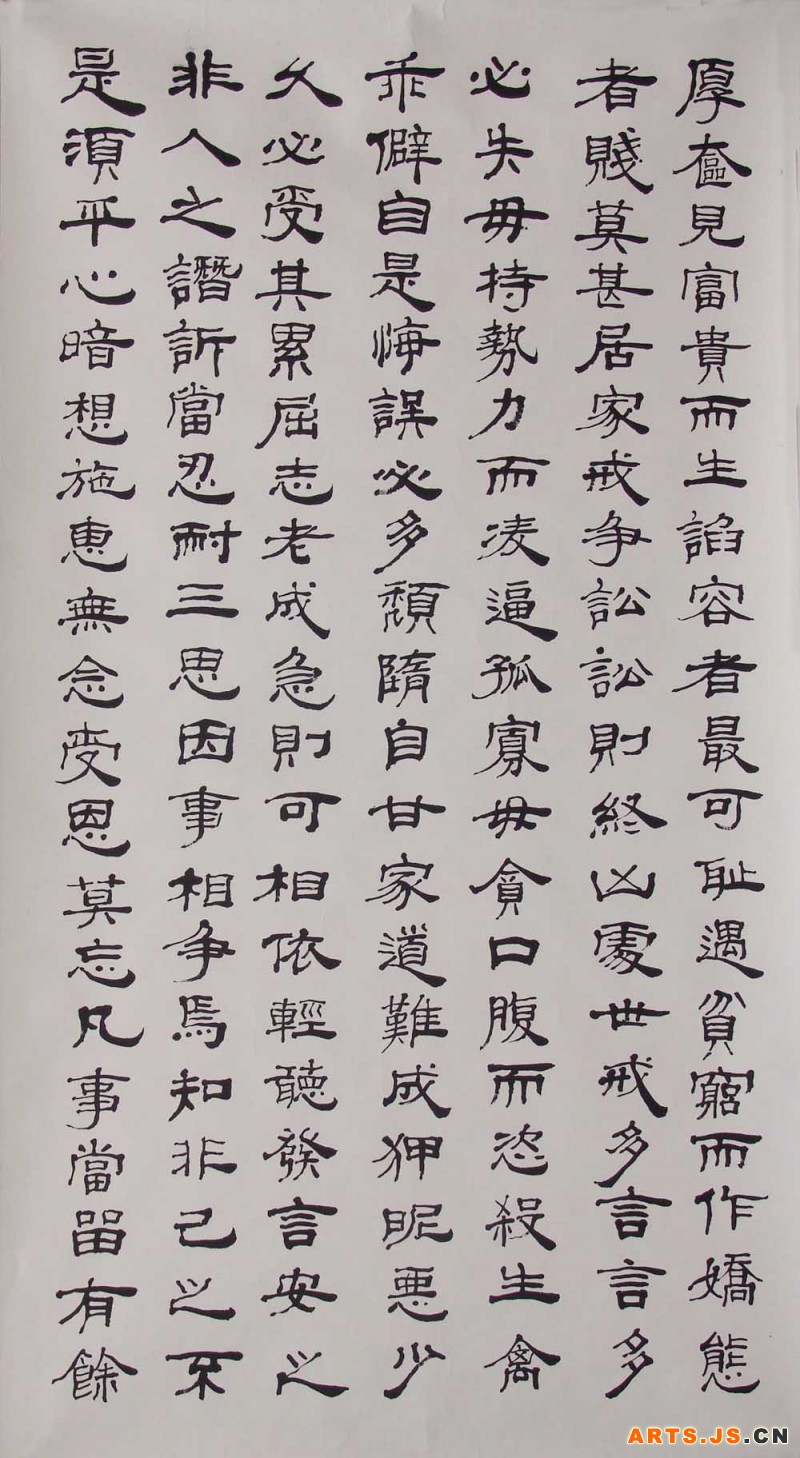 厚奩見富貴而生諂容者最可耻遇貧窮而作嬌態
者賤莫甚居家戒争訟訟則終凶處世戒多言言多
必失毋持勢力而凌逼孤寡毋貪口腹而恣殺生禽
乖僻自是悔誤必多頹隋自甘家道難成狎昵悪少
久必受其累屈志老成急則可相依輕聽發言安之
非人之譖訴當忍耐三思因事相争焉知非己之不
是須平心暗想施惠無念受恩莫忘凡事當留有餘
ARTS.JS.CN